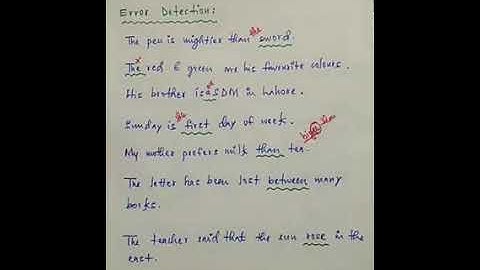 Error Detection:
the
The pen is mightier than sword.
The red & green are his favourite colours.
an
His brother is a SDM in Lahore.
the
Sunday is first day of week.
My mother prefers milk than tea.
The letter has been lost between many
books.
The teacher said that the sun rose in the
east.